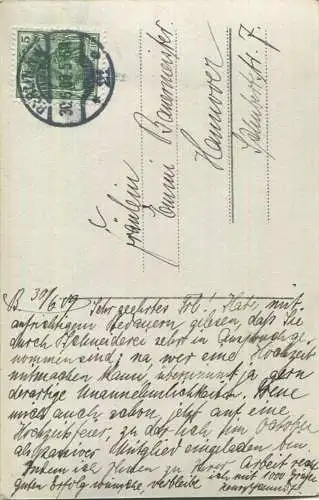 Fräulein
Emmi Bauermeister
Hannover
B 30/6 09 Sehr geehrtes Frl.! Habe mit
aufrichtigem Bedauern gelesen, daß Sie
durch Schneiderei sehr in Anspruch ge-
nommen sind; na wer eine Hochzeit
mitmachen kann, übernimmt ja gern
derartige Unannehmlichkeiten. Freue
mich auch schon, jetzt auf eine
Hochzeitsfeier, zu der ich im October
als passives Mitglied eingeladen bin.
Indem ich Ihnen zu Ihrer Arbeit recht
guten Erfolg wünsche, verbleibe ich mit 1000 Grüßen